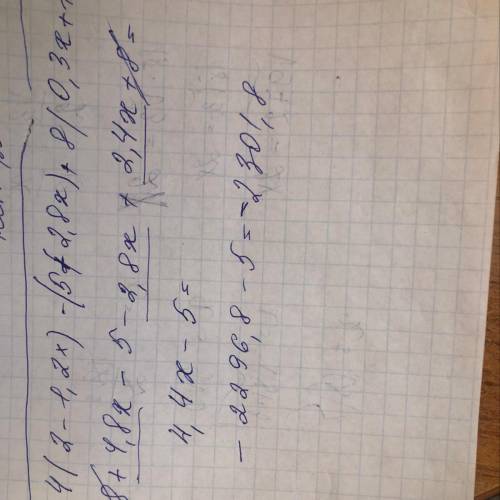 4(2-1,2x)-(5+2,8x)+8(0,3x+
8+4,8x-5-2,8x+2,4x+8=
4,4x-5=
-2296,8-5=-2301,8